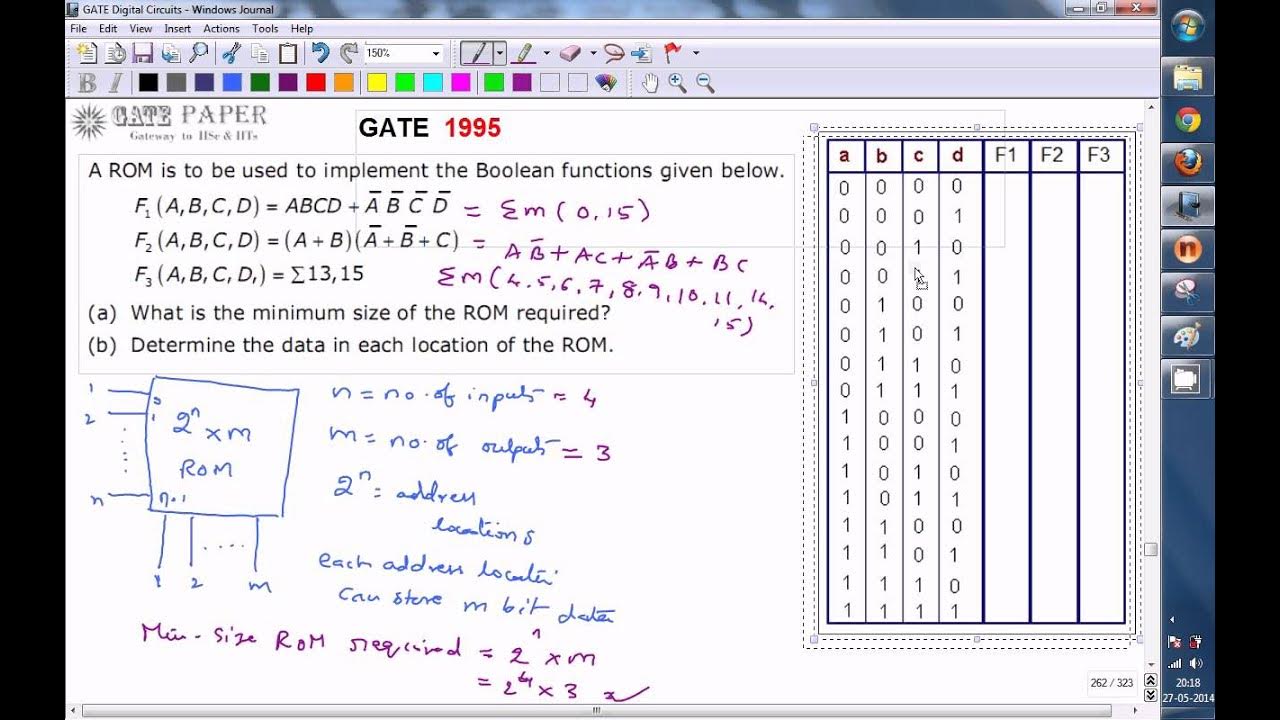 GATE Digital Circuits - Windows Journal
File Edit View Insert Actions Tools Help
150%
B I
GATE PAPER
Gateway to IISc & IITs
GATE 1995
A ROM is to be used to implement the Boolean functions given below.
F₁ (A,B,C,D) = ABCD + A̅ B̅ C̅ D̅ = Σm(0,15)
F₂ (A,B,C,D) = (A + B)(A̅ + B̅ + C) = AB̅ + AC + A̅B + BC
Σm(4,5,6,7,8,9,10,11,14,
15)
F₃ (A,B,C,D,) = Σ13,15
(a) What is the minimum size of the ROM required?
(b) Determine the data in each location of the ROM.
1
2
n
0
1
n-1
2ⁿ x m
ROM
1 2 .... m
n = no. of inputs = 4
m = no. of outputs = 3
2ⁿ = address
locations
each address locati
can store m bit data
Min-size ROM required = 2ⁿ x m
= 2⁴ x 3
a b c d F1 F2 F3
0 0 0 0
0 0 0 1
0 0 1 0
0 0 1
0 1 0 0
0 1 0 1
0 1 1 0
0 1 1 1
1 0 0 0
1 0 0 1
1 0 1 0
1 0 1 1
1 1 0 0
1 1 0 1
1 1 1 0
1 1 1 1
262 / 323
20:18
27-05-2014